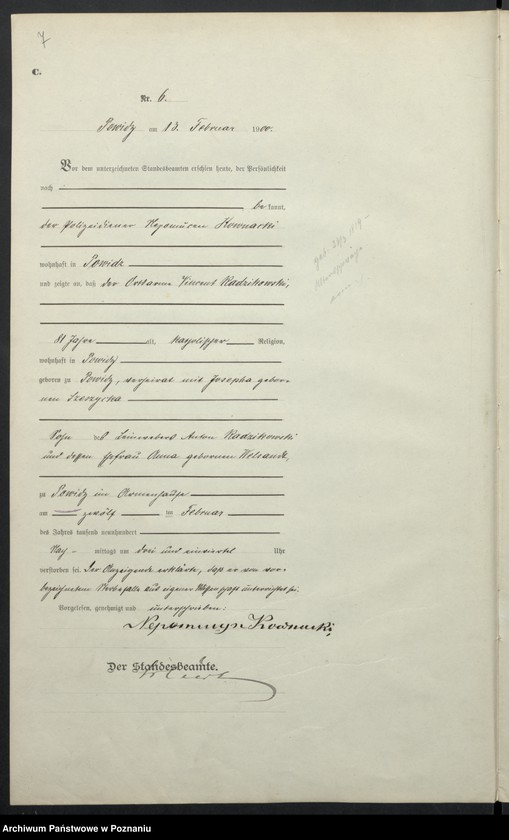 7
C.
Nr. 6.
Powidz am 13. Februar 1900.
Vor dem unterzeichneten Standesbeamten erschien heute, der Persönlichkeit
nach
be kannt,
der Polizeidiener Nepomucen Kownacki
wohnhaft in Powidz
und zeigte an, daß der Ortsarme Vincent Radzikowski,
81 Jahre alt, katholischer Religion,
wohnhaft in Powidz
geboren zu Powidz, verheirat mit Josepha gebor-
nen
Sohn des Leinwebers Anton Radzikowski
und dessen Ehefrau Anna gebornen
zu Powidz im Armenhause
am zwölf ten Februar
des Jahres tausend neunhundert
Nach- mittags um drei und einviertel Uhr
verstorben sei. Der Anzeigende erklärte, daß er von vor-
bezeichneten Sterbefalle aus eigener Wissenschaft unterrichtet sei.
Vorgelesen, genehmigt und unterschrieben:
Nepomucyn Kownacki
Der Standesbeamte.
Archiwum Państwowe w Poznaniu